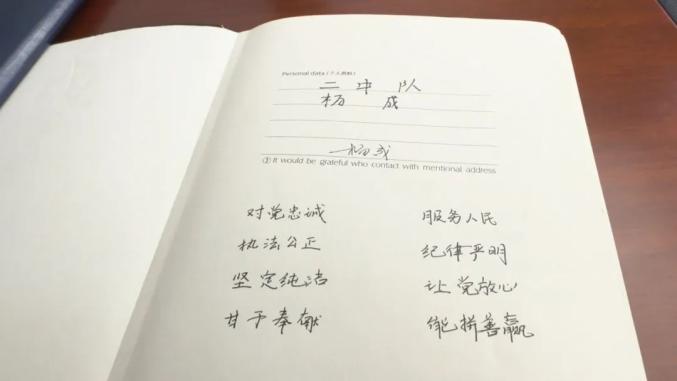 Personal data (个人资料)
二中队
杨成
杨成
① It would be grateful who contact with mentional address
对党忠诚 服务人民
执法公正 纪律严明
坚定纯洁 让党放心
甘于奉献 能拼善赢